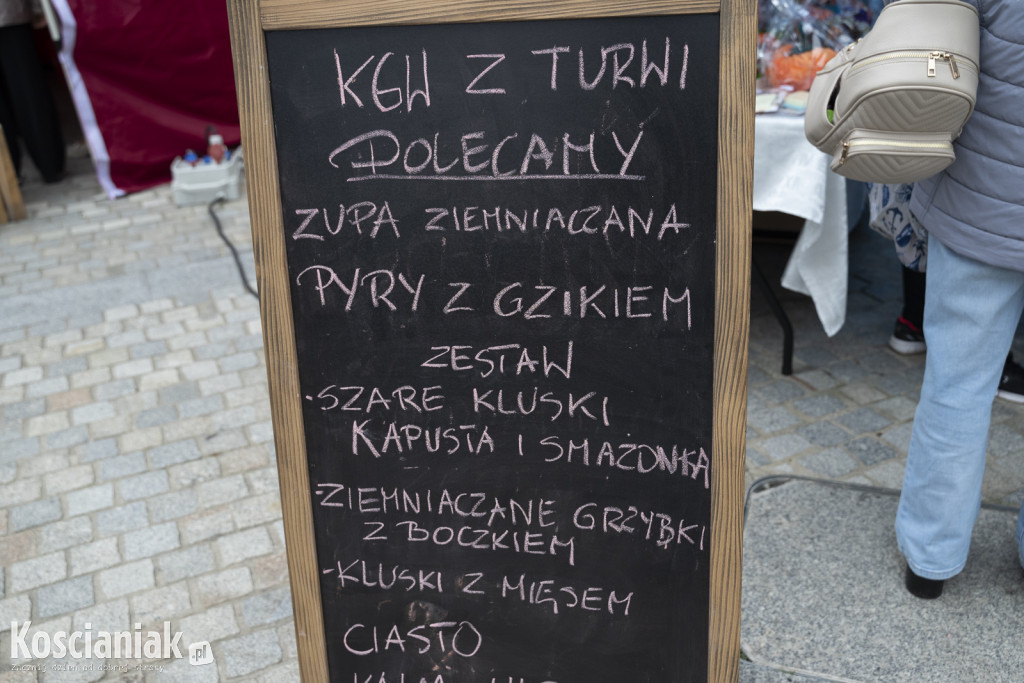 KGW Z TURWI
POLECAMY
ZUPA ZIEMNIACZANA
PYRY Z GZIKIEM
ZESTAW
·SZARE KLUSKI
KAPUSTA I SMAŻONKA
-ZIEMNIACZANE GRZYBKI
Z BOCZKIEM
-KLUSKI Z MIĘSEM
CIASTO
Koscianiak.pl
Zacznij dzień od dobrej strony